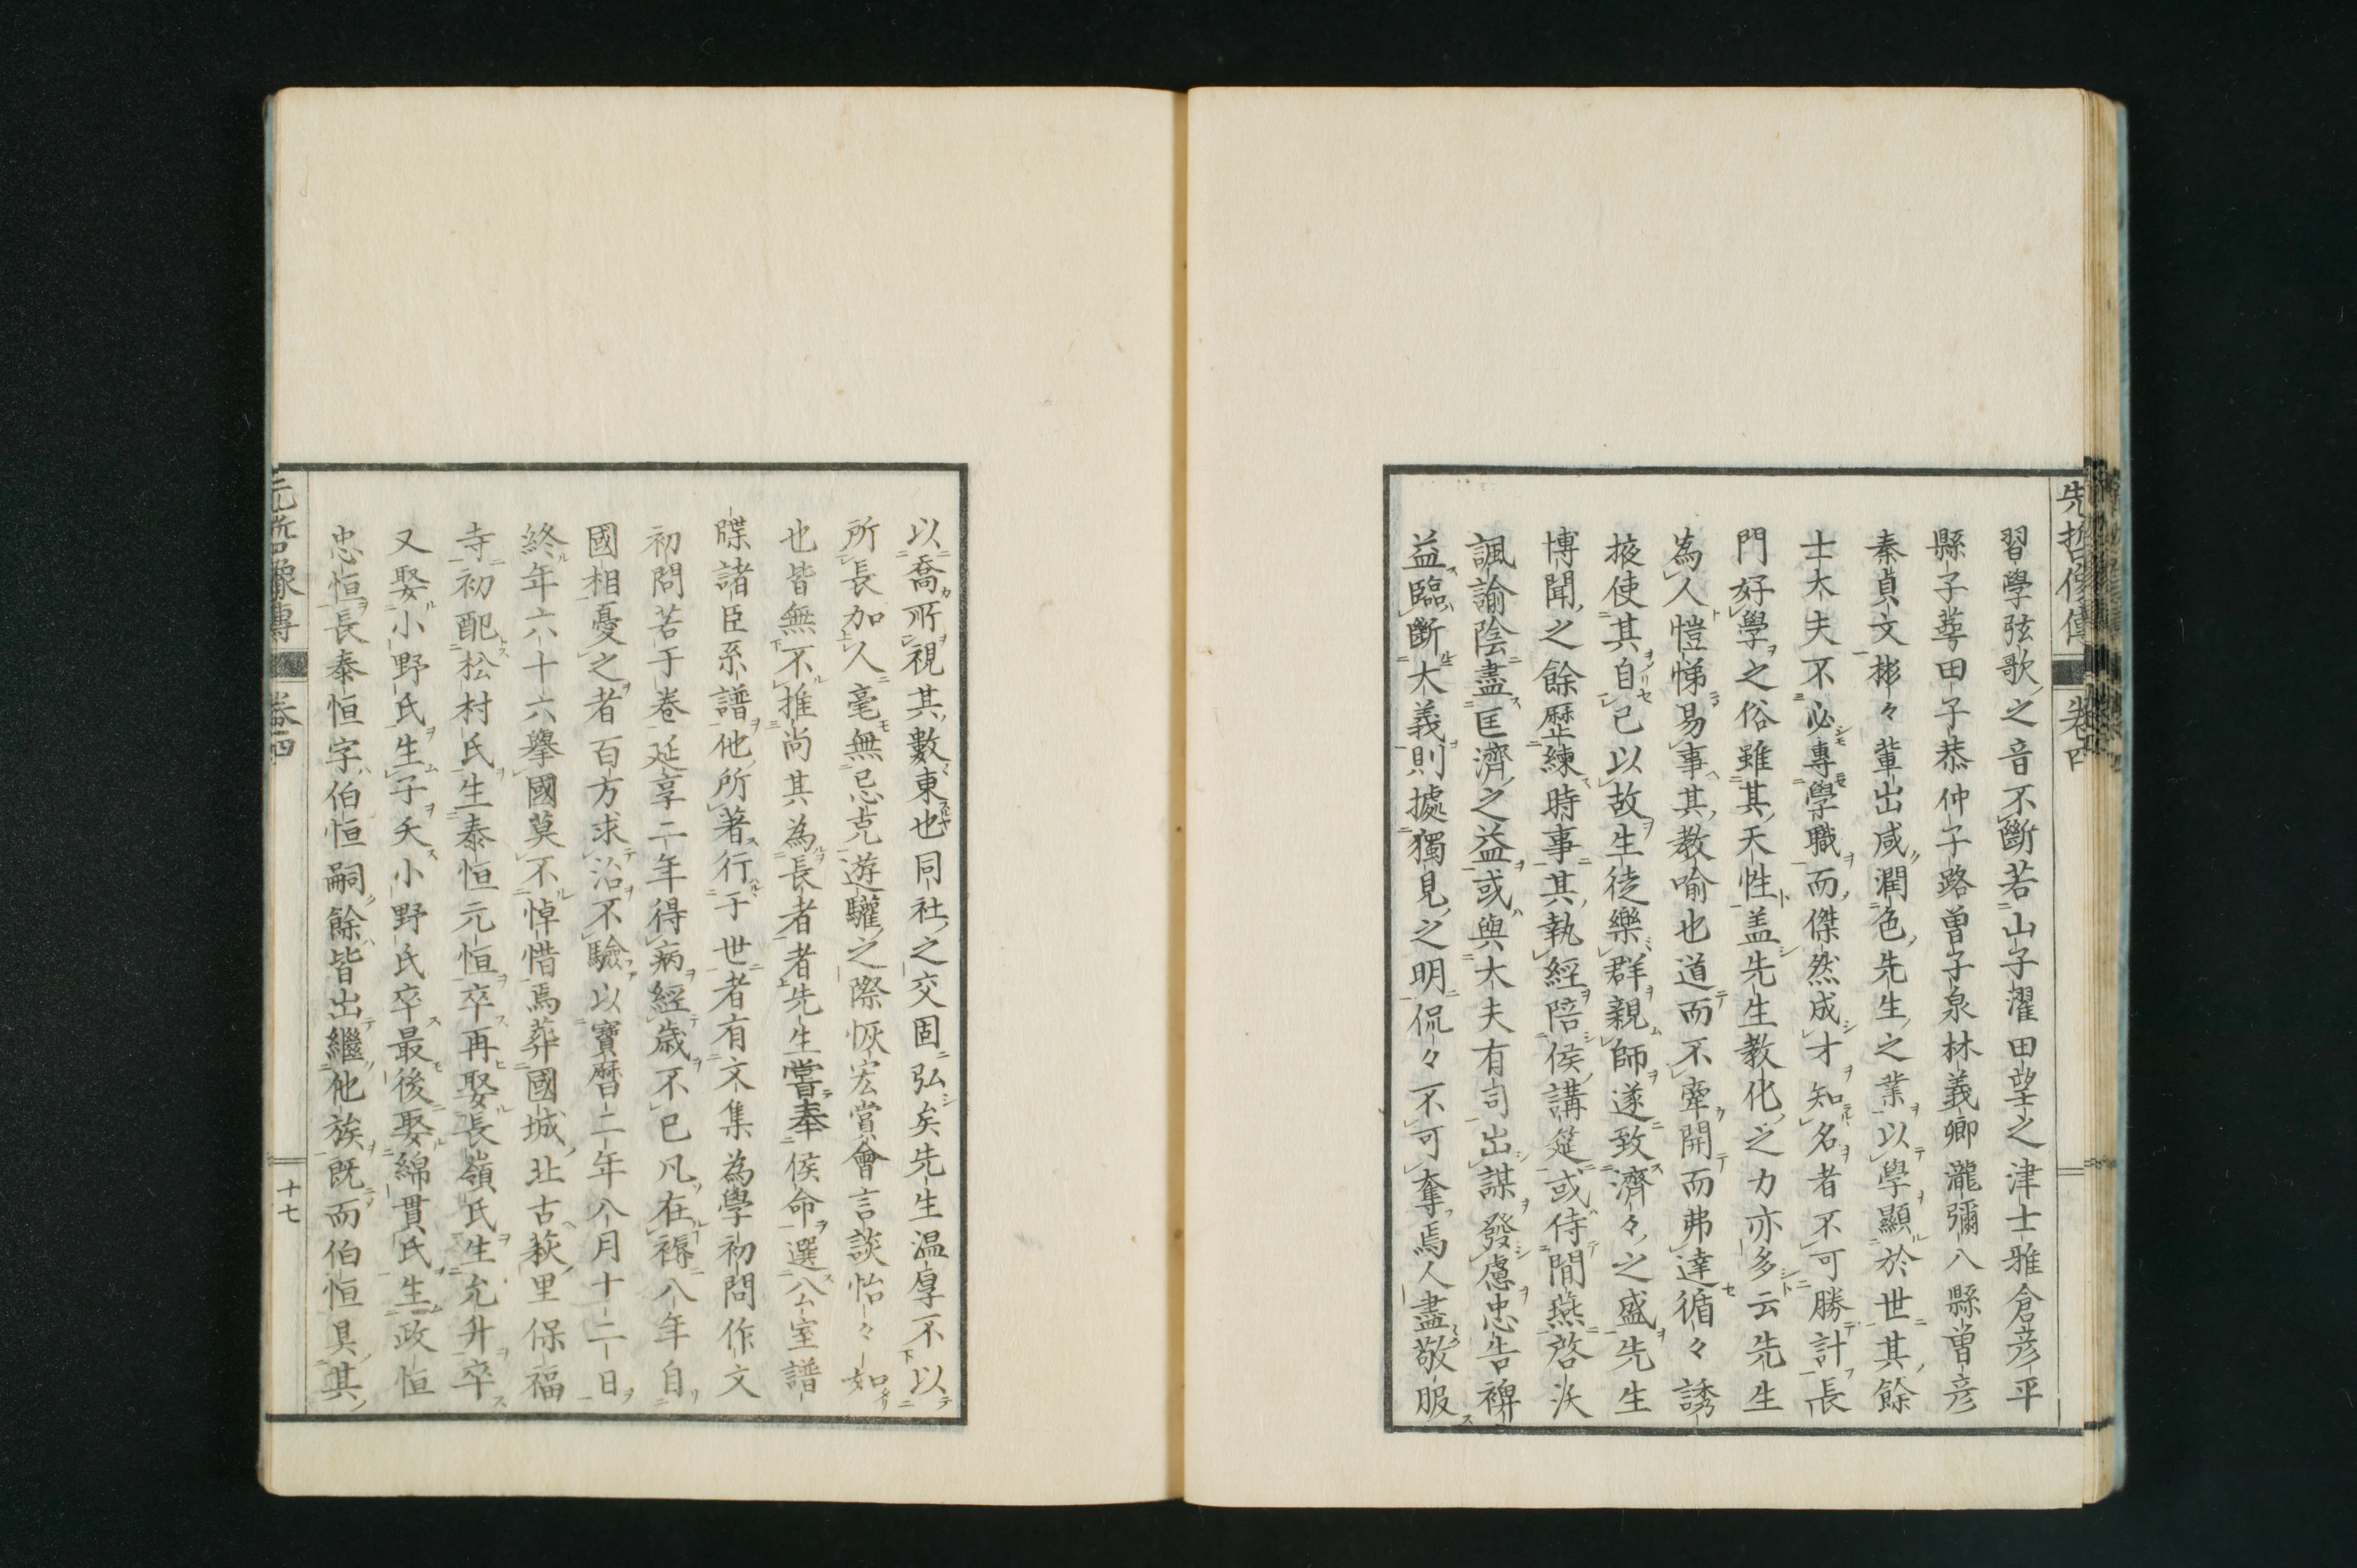 先哲像傳 卷四
習學弦歌之音不斷若山子濯田望之津士雅倉彦平
縣子蕚田子恭仲子路曽子泉林義卿瀧彌八縣曽彦
秦貞文彬々輩出咸潤色先生之業以學顯於世其餘
士大夫不必專學職而傑然成才知名者不可勝計長
門好學之俗雖其天性盖先生教化之力亦多云先生
為人愷悌易事其教喻也道而不牽開而弗達循々誘
掖使其自已以故生徒樂群親師遂致濟々之盛先生
博聞之餘歴練時事其執經陪侯講筵或侍間燕啓沃
諷諭陰盡匡濟之益或與大夫有司出謀發慮忠告裨
益臨斷大義則據獨見之明侃々不可奪焉人盡敬服
以喬所視其數東也同社之交固弘矣先生温厚不以
所長加人毫無忌克遊驩之際恢宏賞會言談怡々如
也皆無不推尚其為長者者先生嘗奉侯命選公室譜
牒諸臣系譜他所著行于世者有文集為學初問作文
初問若干卷延享二年得病經歳不已凡在褥八年自
國相憂之者百方求治不驗以寳暦二年八月十二日
終年六十六擧國莫不悼惜焉葬國城北古萩里保福
寺初配松村氏生泰恒元恒卒再娶長嶺氏生允升卒
又娶小野氏生子夭小野氏卒最後娶綿貫氏生政恒
忠恒長泰恒字伯恒嗣餘皆出繼他族既而伯恒具其
先哲像傳 卷四 十七